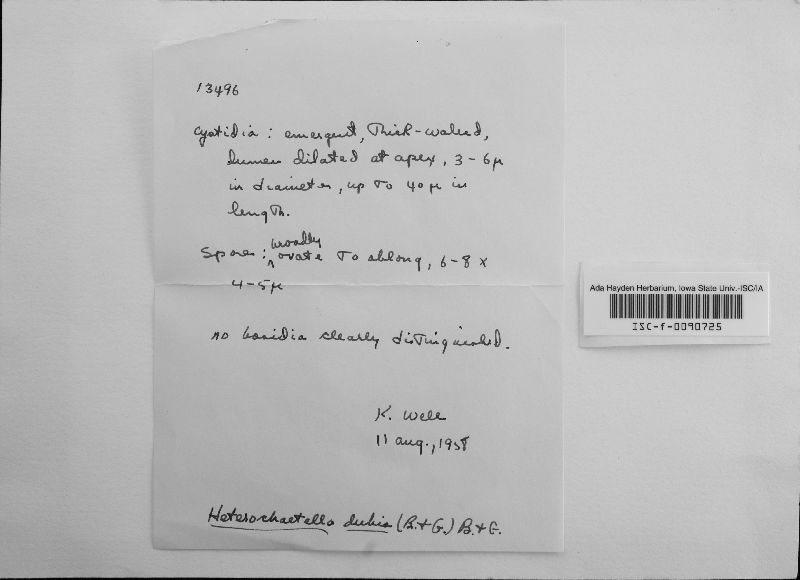 13496
Cystidia: emergent, Thick-walled,
lumen dilated at apex, 3-6µ
in diameter, up to 40µ in
length.
broadly
Spores: ^ ovate to oblong, 6-8 x
4-5µ
no basidia clearly distinguished.
K. Wells
11 Aug., 1958
Heterochaetella dubia (B.+G.) B.+G.
Ada Hayden Herbarium, Iowa State Univ.-ISC/IA
ISC-f-0090725